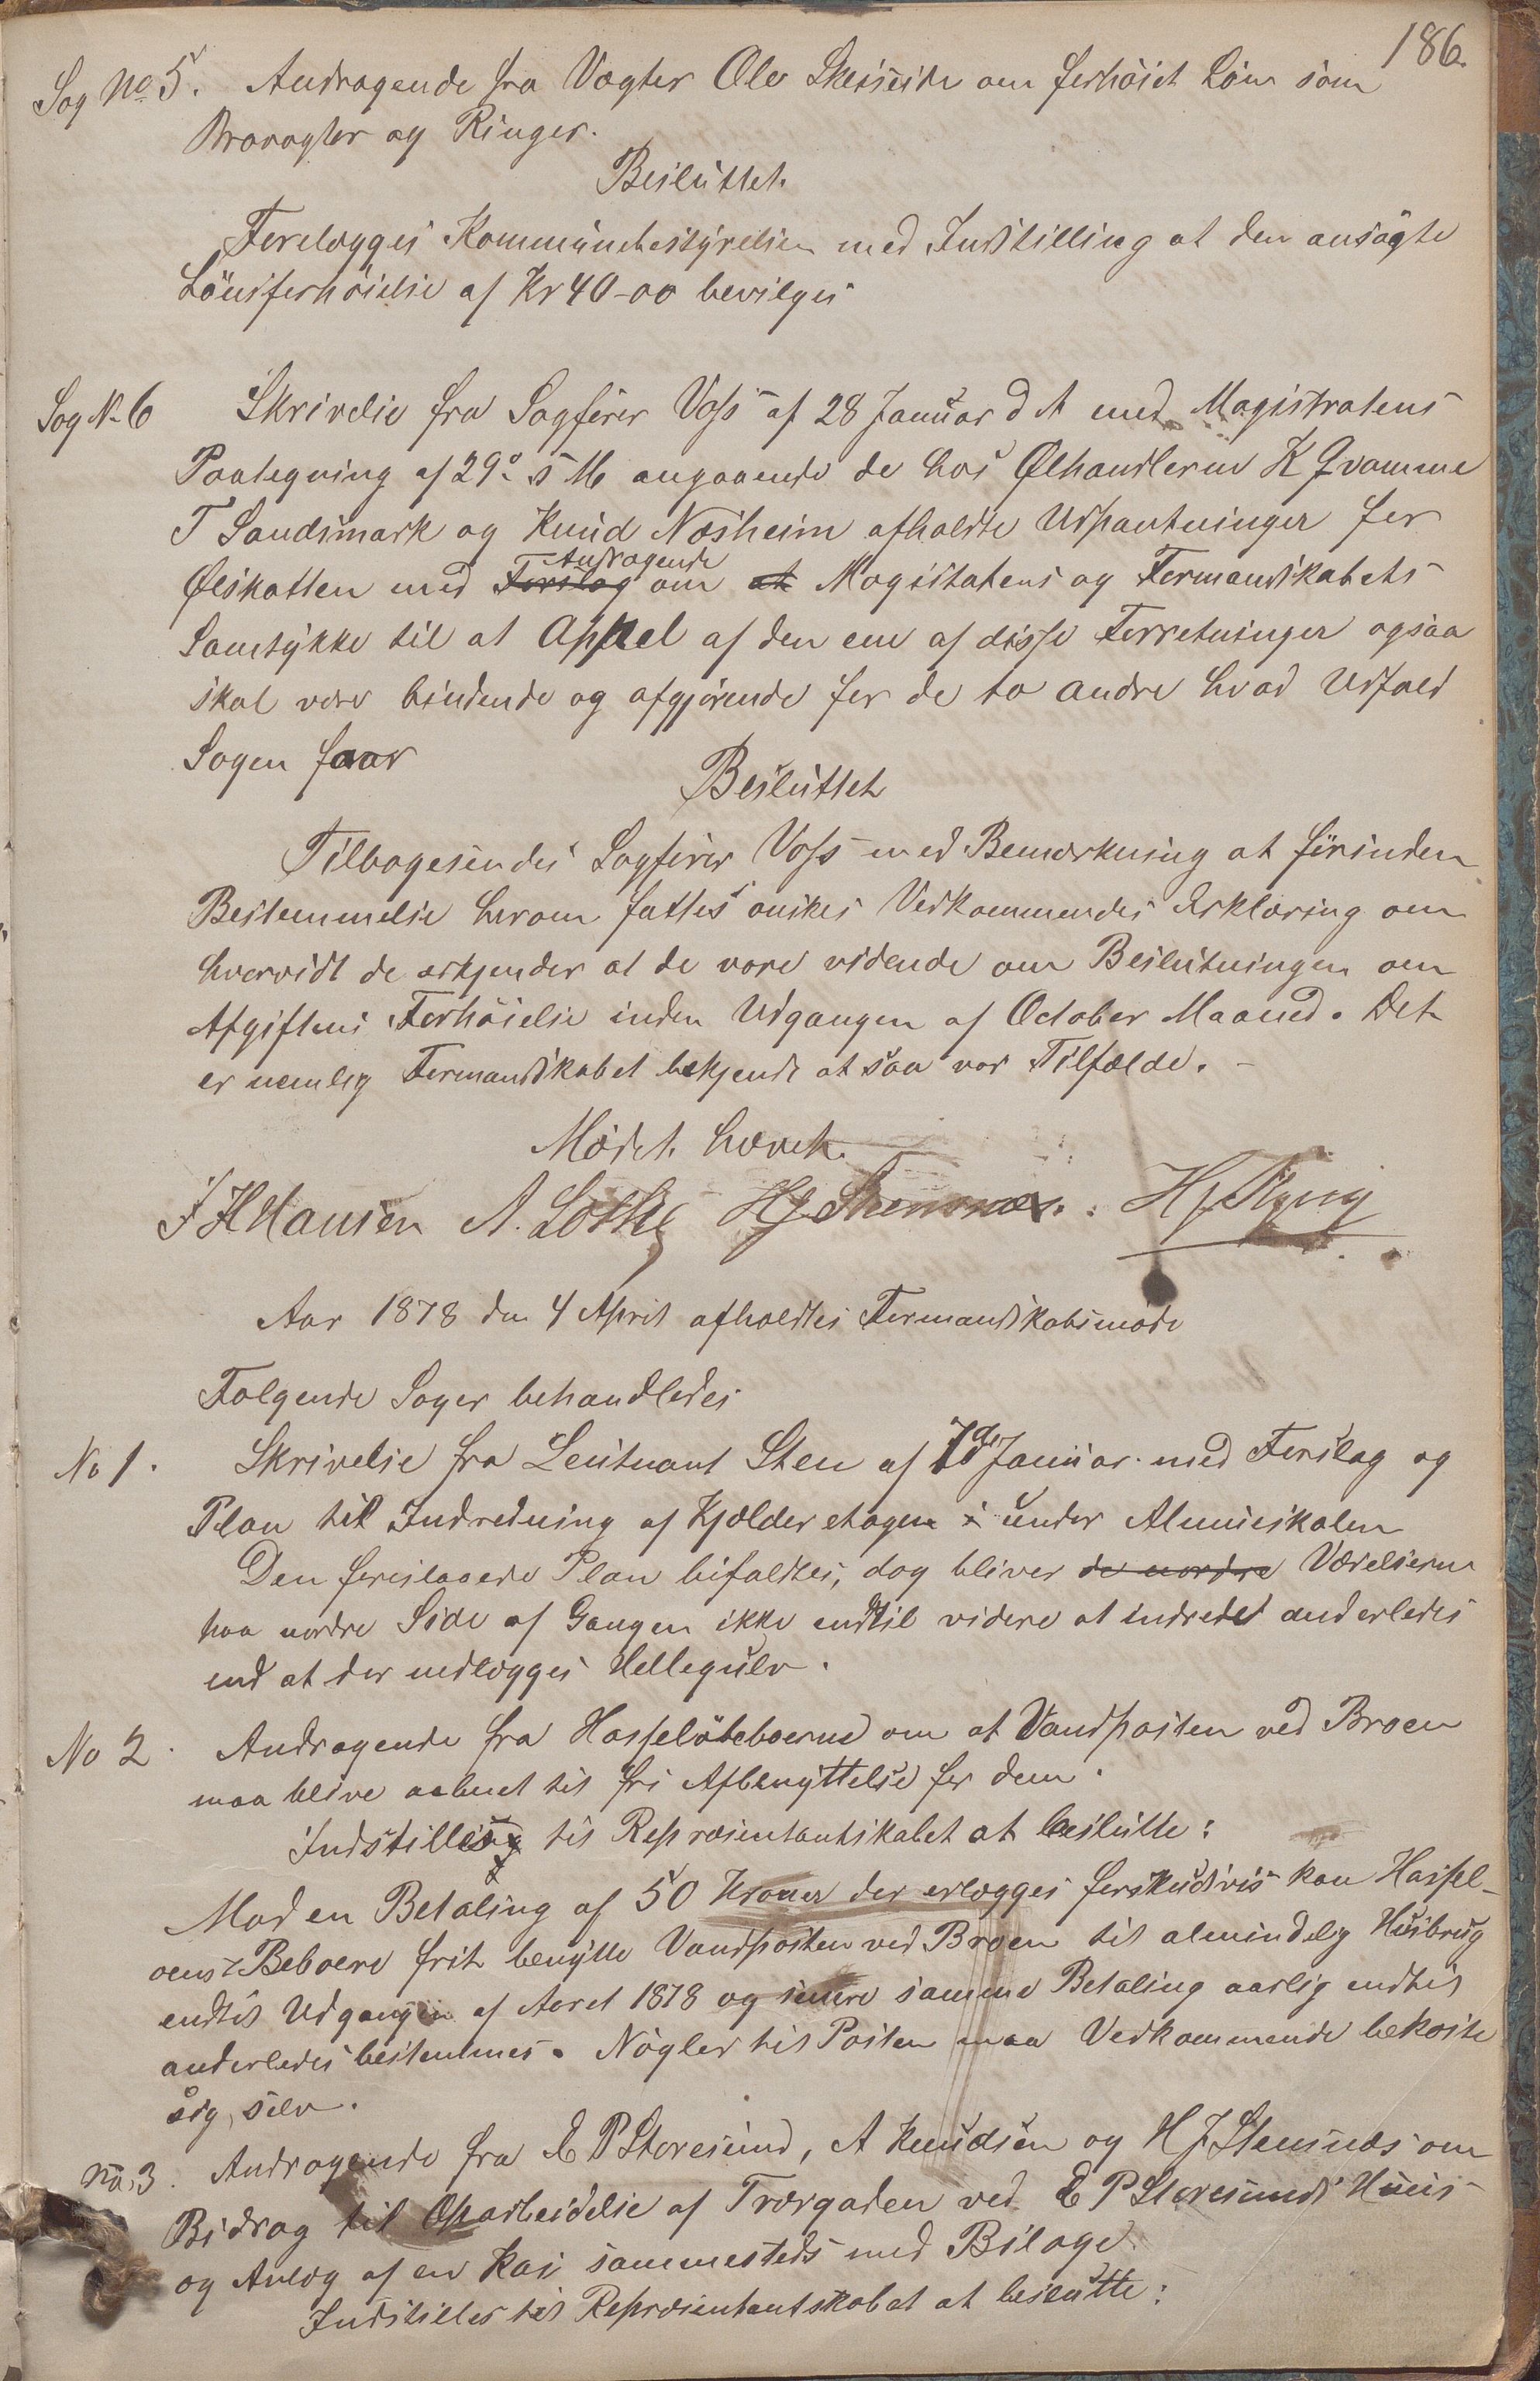 186.
Sag No 5. Andragende fra Vægter Ole Skeiseide om forhøiet Løn som
Brovogter og Ringer.
Besluttet.
Forelægges Kommunebestyrelsen med Indstilling at den ansøgte
Lønsforhøielse af Kr 40-00 bevilges
Sag N. 6 Skrivelse fra Sagfører Voss af 28 Januar d A med Magistratens
Paategning af 29de s M angaaende de hos Ølhandlerne K Qvamme
T Sandsmark og Knud Næsheim afholdte Udpantninger for
Andragende
Ølskatten med Forslag om at Magistatens og Formandskabets
Samtykke til at Appel af den ene af disse Forretninger ogsaa
skal være bindende og afgjørende for de to andre hvad Udfald
Sagen faar
Besluttet
Tilbagesendes Sagfører Voss med Bemærkning at førinden
Bestemmelse herom fattes ønskes Vedkommendes Erklæring om
hvorvidt de erkjender at de vare vidende om Beslutningen om
Afgiftens Forhøielse inden Udgangen af October Maaned. Det
er nemlig Formandskabet bekjendt at saa var Tilfælde. -
Mødet hævet.
J H Hansen A. Lothe HJ Stensnæs. H J
Aar 1878 den 4 April afholdtes Formandskabsmøde
Følgende Sager behandledes
No 1. Skrivelse fra Leutnant Sten af 7de Januar med Forslag og
Plan til Indredning af Kjælderetagen i under Almueskolen
Den foreslaaede Plan bifaldtes, dog bliver de nordre Værelserne
paa nordre Side af Gangen ikke indtil videre at indrede anderledes
end at der nedlægges Hellegulv.
No 2. Andragende fra Hasseløbeboerne om at Vandposten ved Broen
maa blive aabnet til fri Afbenyttelse for dem.
Indstilles til Repræsentantskabet at beslutte:
Mod en Betaling af 50 Kroner der erlægges forskudsvis kan Hassel-
øens Beboere frit benytte Vandposten ved Broen til almindelig Husbrug
indtil Udgangen af Aaret 1878 og senere samme Betaling aarlig indtil
anderledes bestemmes. Nøgler til Posten maa Vedkommende bekoste
sig selv.
No. 3. Andragende fra E P Storesund, A Knudsen og H J Stensnæs om
Bidrag til Oparbeidelse af Tværgaden ved E P Storesunds Huus
og Anlæg af en Kai sammesteds med Bilage.
Indstilles til Repræsentantskabet at beslutte: